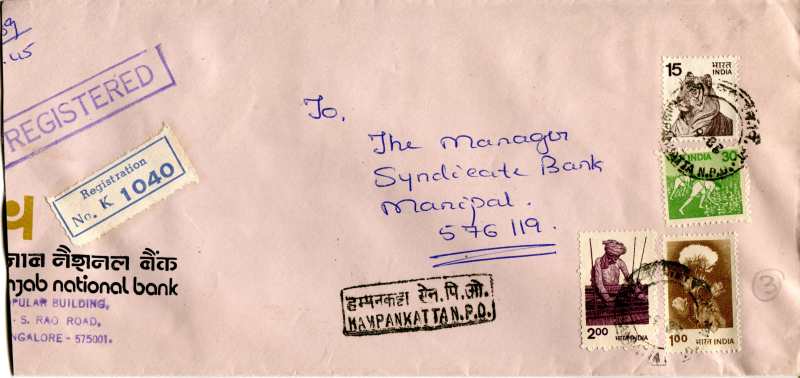 .45
REGISTERED
Registration
No. K 1040
नैशनल बैंक
national bank
BUILDING,
S. RAO ROAD,
575001.
To,
The Manager
Syndicate Bank
Manipal.
576 119.
हम्पनकट्टा ऐन.पि.ओ.
HAMPANKATTA N.P.O.
15 भारत
INDIA
INDIA 30
KATTA N.P.O.
2.00 भारत INDIA
1.00 भारत INDIA
3